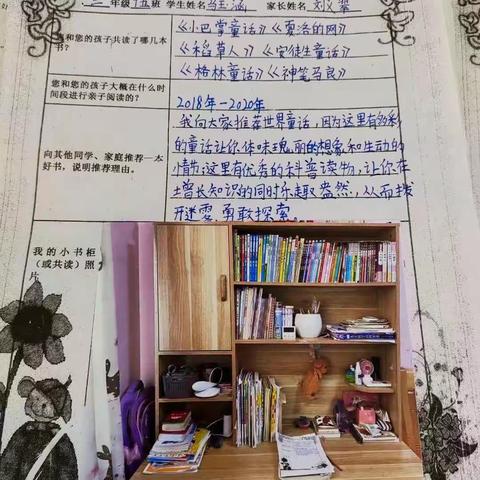 三年级 班 学生姓名 涵 家长姓名 刘文翠
您和您的孩子共读了哪几本书?
《小巴掌童话》《夏洛的网》
《稻草人》《安徒生童话》
《格林童话》《神笔马良》
您和您的孩子大概在什么时间段进行亲子阅读的?
2018年—2020年
向其他同学、家庭推荐一本好书,说明推荐理由。
我向大家推荐世界童话,因为这里有多彩
的童话让你体味瑰丽的想象和生动的
情节;这里有优秀的科普读物,让你在
增长知识的同时乐趣盎然,从而拨
开迷雾,勇敢探索。
我的小书柜
(或共读)照
片